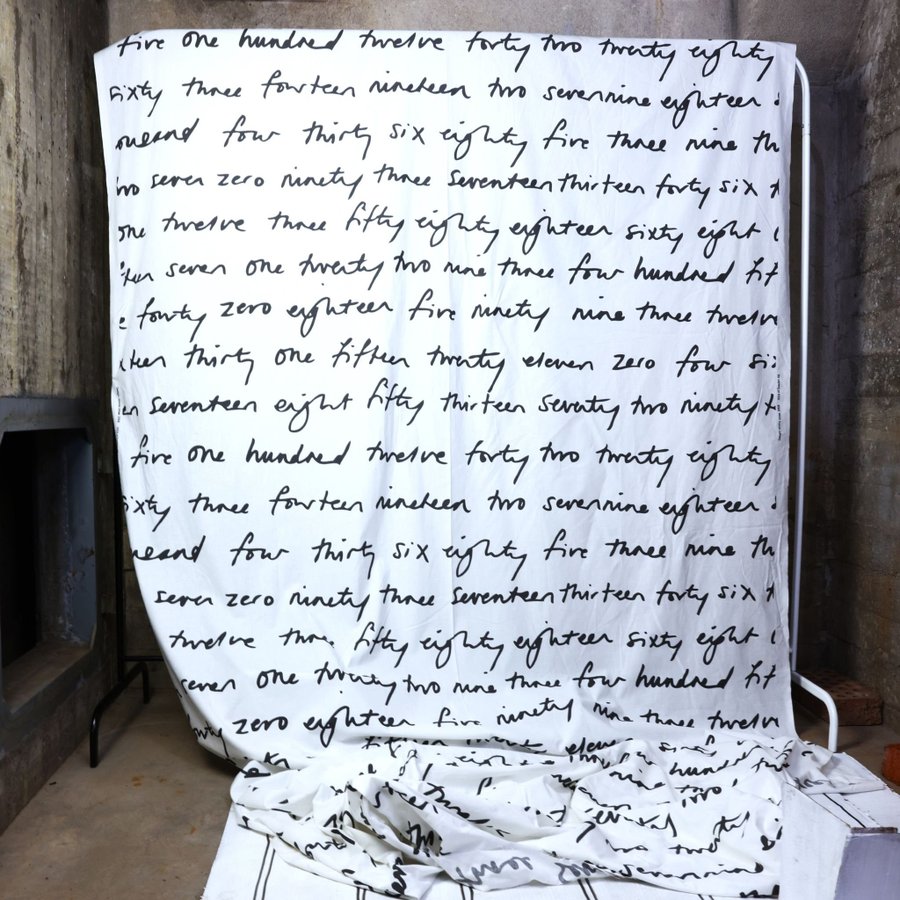 five one hundred twelve forty two twenty eighty
sixty three fourteen nineteen two seven nine eighteen
four thirty six eighty five three nine th
two seven zero ninety three seventeen thirteen forty six t
one twelve three fifty eighty eighteen sixty eight
seven one twenty two nine three four hundred fif
forty zero eighteen five ninety nine three twelve
teen thirty one fifteen twenty eleven zero four six
en seventeen eight fifty thirteen seventy two ninety t
five one hundred twelve forty two twenty eighty
sixty three fourteen nineteen two seven nine eighteen
four thirty six eighty five three nine th
seven zero ninety three seventeen thirteen forty six t
twelve three fifty eighty eighteen sixty eight
seven one twenty two nine three four hundred fif
zero eighteen five ninety nine three twelve
fifteen eleven
nine hundred